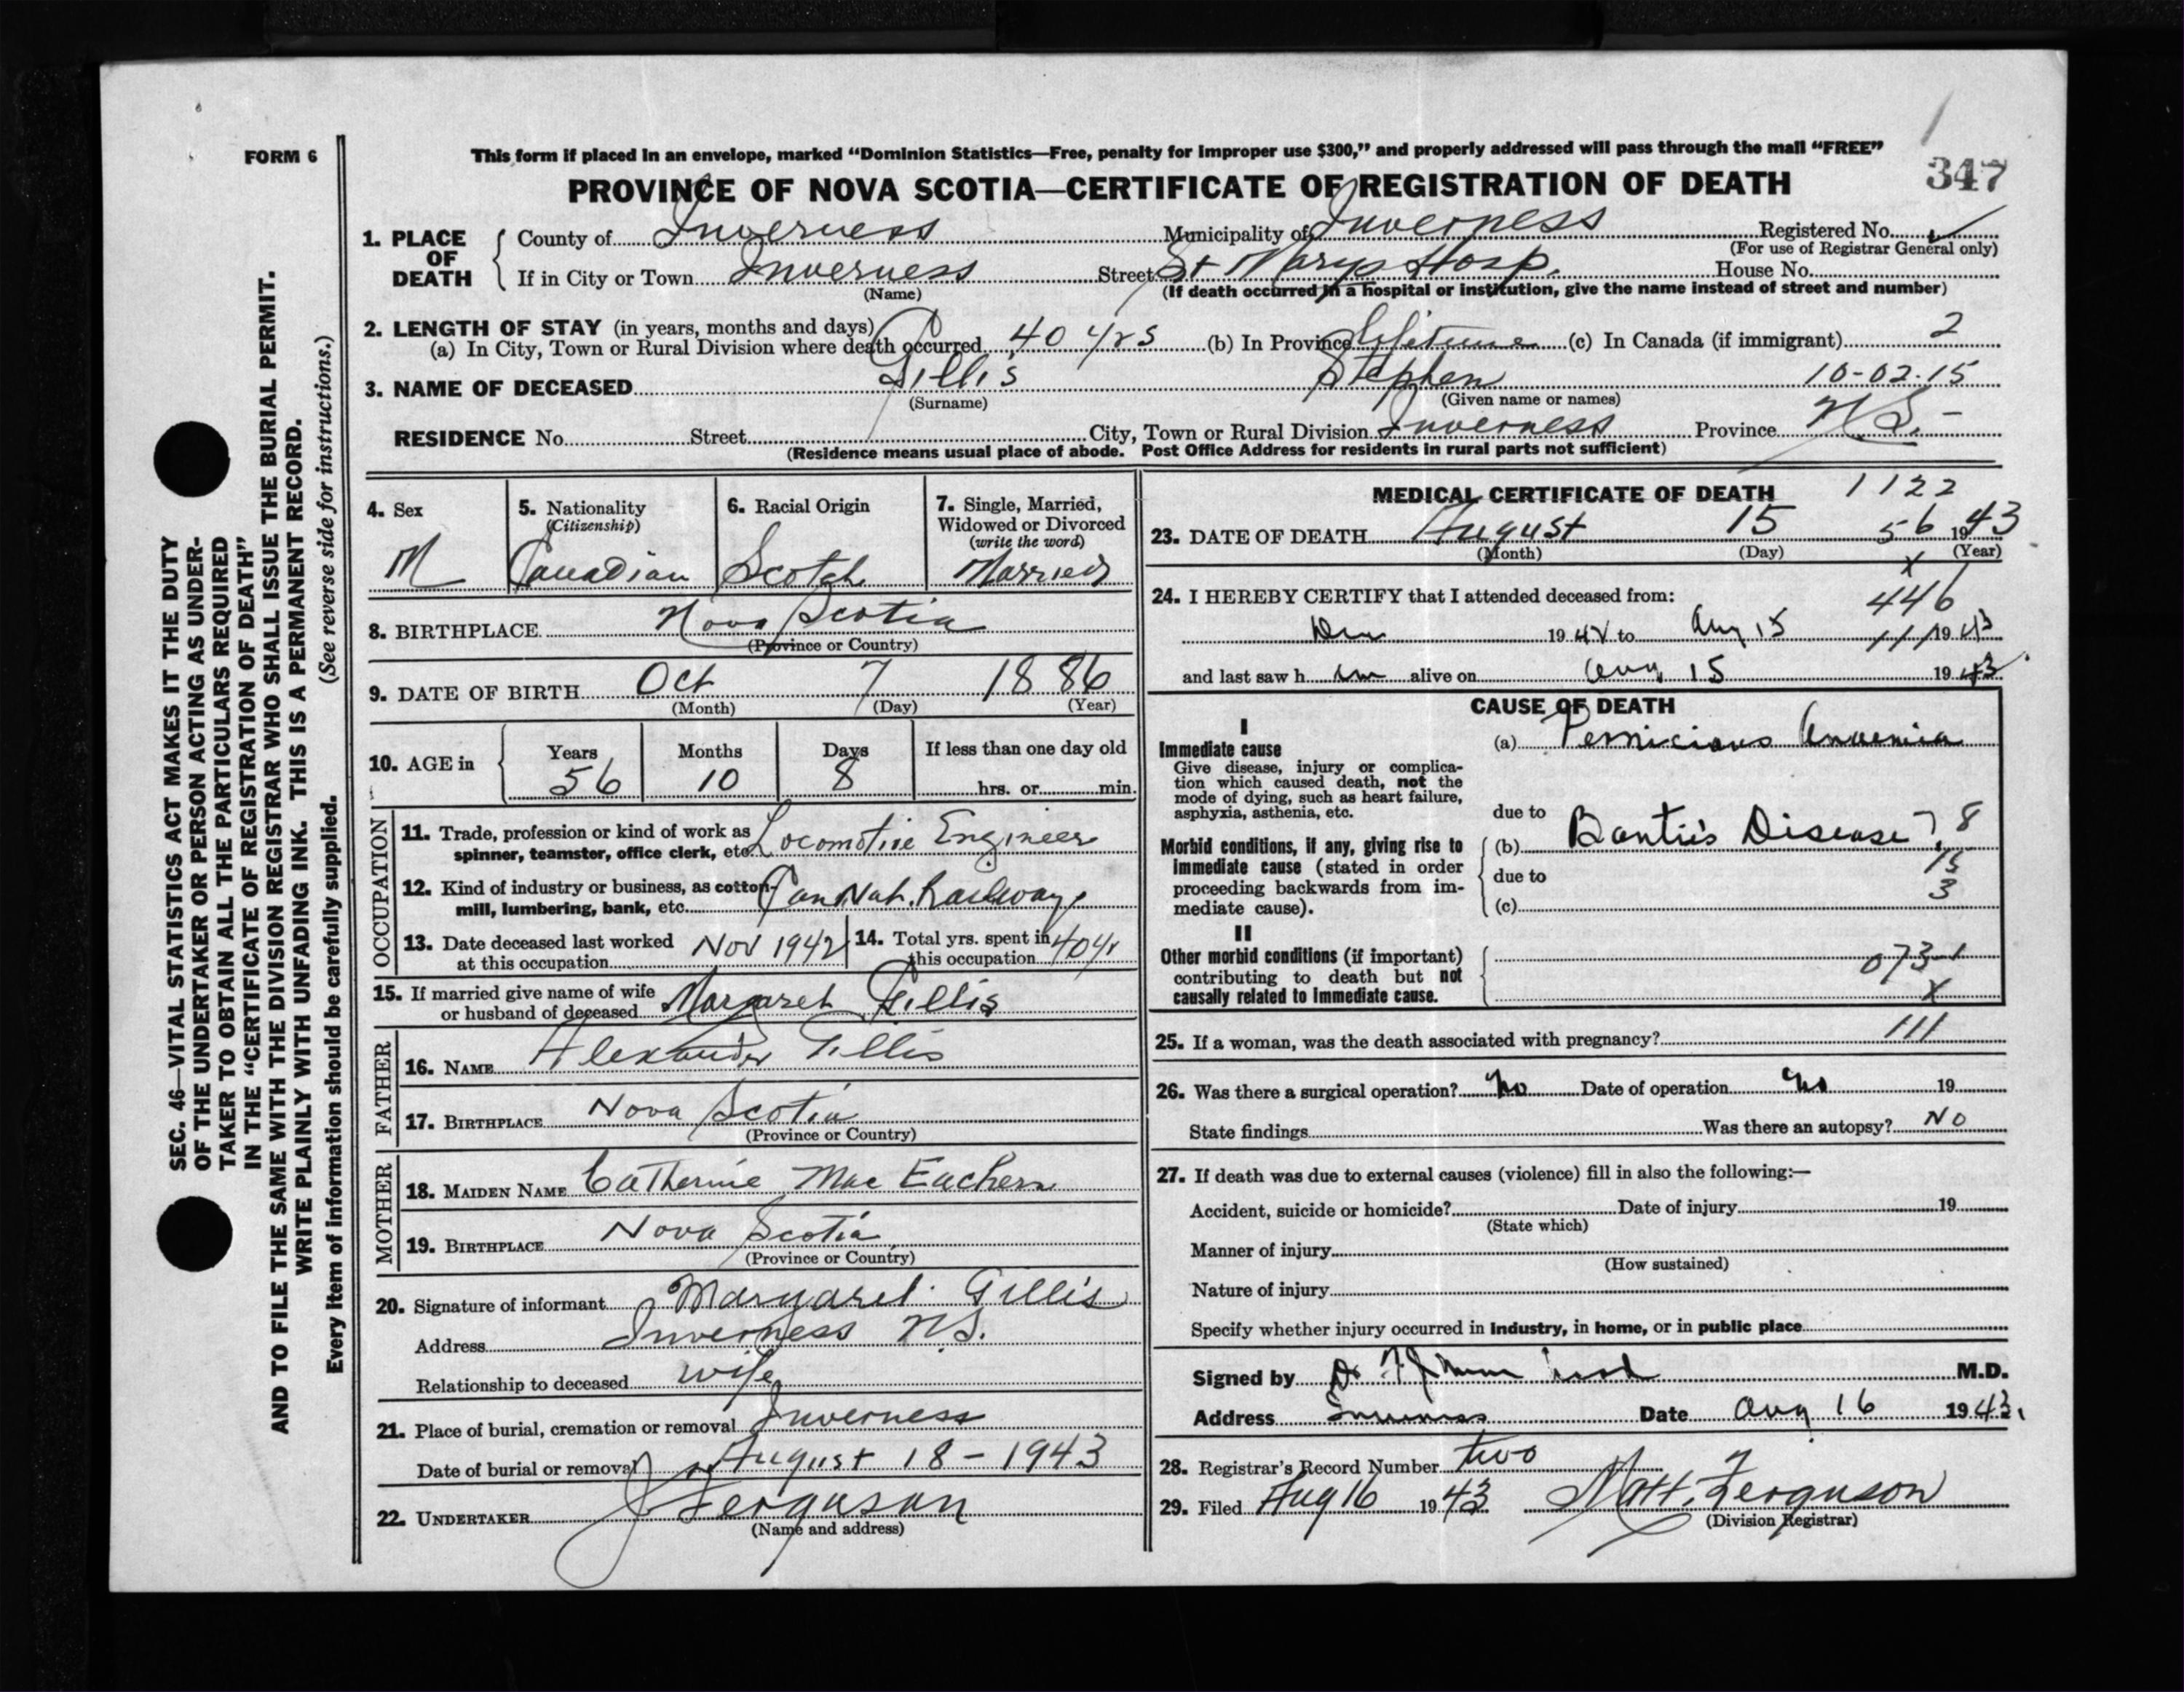 FORM 6
This form if placed in an envelope, marked “Dominion Statistics—Free, penalty for improper use $300,” and properly addressed will pass through the mail “FREE”
PROVINCE OF NOVA SCOTIA—CERTIFICATE OF REGISTRATION OF DEATH
347
1. PLACE OF DEATH
County of Inverness Municipality of Inverness Registered No.
(For use of Registrar General only)
If in City or Town Inverness Street St Marys Hosp. House No.
(Name) (If death occurred in a hospital or institution, give the name instead of street and number)
2. LENGTH OF STAY (in years, months and days)
(a) In City, Town or Rural Division where death occurred 40 yrs (b) In Province Lifetime (c) In Canada (if immigrant) 2
3. NAME OF DECEASED Gillis Stephen 10-02-15
(Surname) (Given name or names)
RESIDENCE No. Street City, Town or Rural Division Inverness Province N.S. -
(Residence means usual place of abode. Post Office Address for residents in rural parts not sufficient)
4. Sex
M
5. Nationality
(Citizenship)
Canadian
6. Racial Origin
Scotch
7. Single, Married,
Widowed or Divorced
(write the word)
Married
8. BIRTHPLACE Nova Scotia
(Province or Country)
9. DATE OF BIRTH Oct 7 1886
(Month) (Day) (Year)
10. AGE in
Years Months Days If less than one day old
56 10 8 hrs. or min.
OCCUPATION
11. Trade, profession or kind of work as
spinner, teamster, office clerk, etc. Locomotive Engineer
12. Kind of industry or business, as cotton-
mill, lumbering, bank, etc. Can Nat. Railways
13. Date deceased last worked
at this occupation Nov 1942
14. Total yrs. spent in
this occupation 40 yr
15. If married give name of wife
or husband of deceased Margaret Gillis
FATHER
16. NAME Alexander Gillis
17. BIRTHPLACE Nova Scotia
(Province or Country)
MOTHER
18. MAIDEN NAME Catherine Mac Eachern
19. BIRTHPLACE Nova Scotia
(Province or Country)
20. Signature of informant Margaret Gillis
Address Inverness N.S.
Relationship to deceased wife
21. Place of burial, cremation or removal Inverness
Date of burial or removal August 18 - 1943
22. UNDERTAKER J Ferguson
(Name and address)
MEDICAL CERTIFICATE OF DEATH 1122
23. DATE OF DEATH August 15 56 1943
(Month) (Day) (Year)
x
24. I HEREBY CERTIFY that I attended deceased from:
446
Dec 1942 to Aug 15 111 1943
and last saw him alive on Aug 15 1943
CAUSE OF DEATH
I
Immediate cause
Give disease, injury or complica-
tion which caused death, not the
mode of dying, such as heart failure,
asphyxia, asthenia, etc.
(a) Pernicious Anaemia
due to
Morbid conditions, if any, giving rise to
immediate cause (stated in order
proceeding backwards from im-
mediate cause).
(b) Banti's Disease ? 8
due to
15
3
(c)
II
Other morbid conditions (if important)
contributing to death but not
causally related to immediate cause.
073-1
x
25. If a woman, was the death associated with pregnancy? 111
26. Was there a surgical operation? No Date of operation No 19
State findings Was there an autopsy? No
27. If death was due to external causes (violence) fill in also the following:—
Accident, suicide or homicide? Date of injury 19
(State which)
Manner of injury
(How sustained)
Nature of injury
Specify whether injury occurred in industry, in home, or in public place
Signed by Dr M.D.
Address Inverness Date Aug 16 1943.
28. Registrar's Record Number two
29. Filed Aug 16 1943 Matt. Ferguson
(Division Registrar)
SEC. 46—VITAL STATISTICS ACT MAKES IT THE DUTY
OF THE UNDERTAKER OR PERSON ACTING AS UNDER-
TAKER TO OBTAIN ALL THE PARTICULARS REQUIRED
IN THE “CERTIFICATE OF REGISTRATION OF DEATH”
AND TO FILE THE SAME WITH THE DIVISION REGISTRAR WHO SHALL ISSUE THE BURIAL PERMIT.
WRITE PLAINLY WITH UNFADING INK. THIS IS A PERMANENT RECORD.
Every item of information should be carefully supplied. (See reverse side for instructions.)